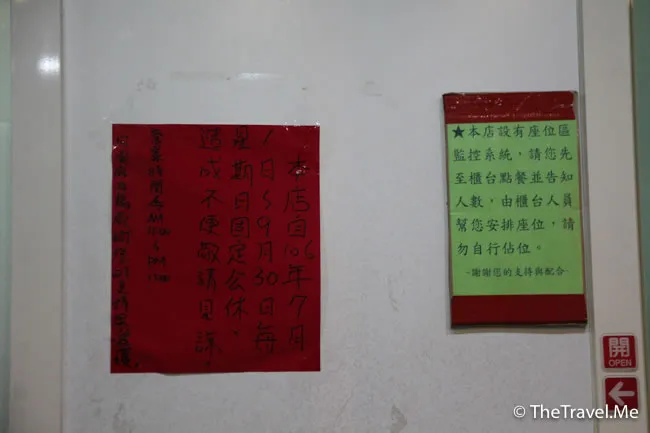 本店自106年7月
1日至9月30日每
星期日固定公休、
造成不便敬請見諒。
營業時間為AM
★本店設有座位區
監控系統，請您先
至櫃台點餐並告知
人數，由櫃台人員
幫您安排座位，請
勿自行佔位。
-謝謝您的支持與配合-
開
OPEN
© TheTravel.Me